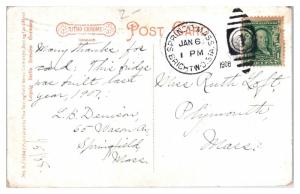 POST CARD
LITHO-CHROME
SPRINGF. MASS.
JAN 6
1 PM
BRIGHTWOOD STA.
1908
Many thanks for
card. This bridge
was built last
year, 1907.
L. B. Denison,
65
Springfield
Mass.
Miss Ruth Loft,
Plymouth
Mass.